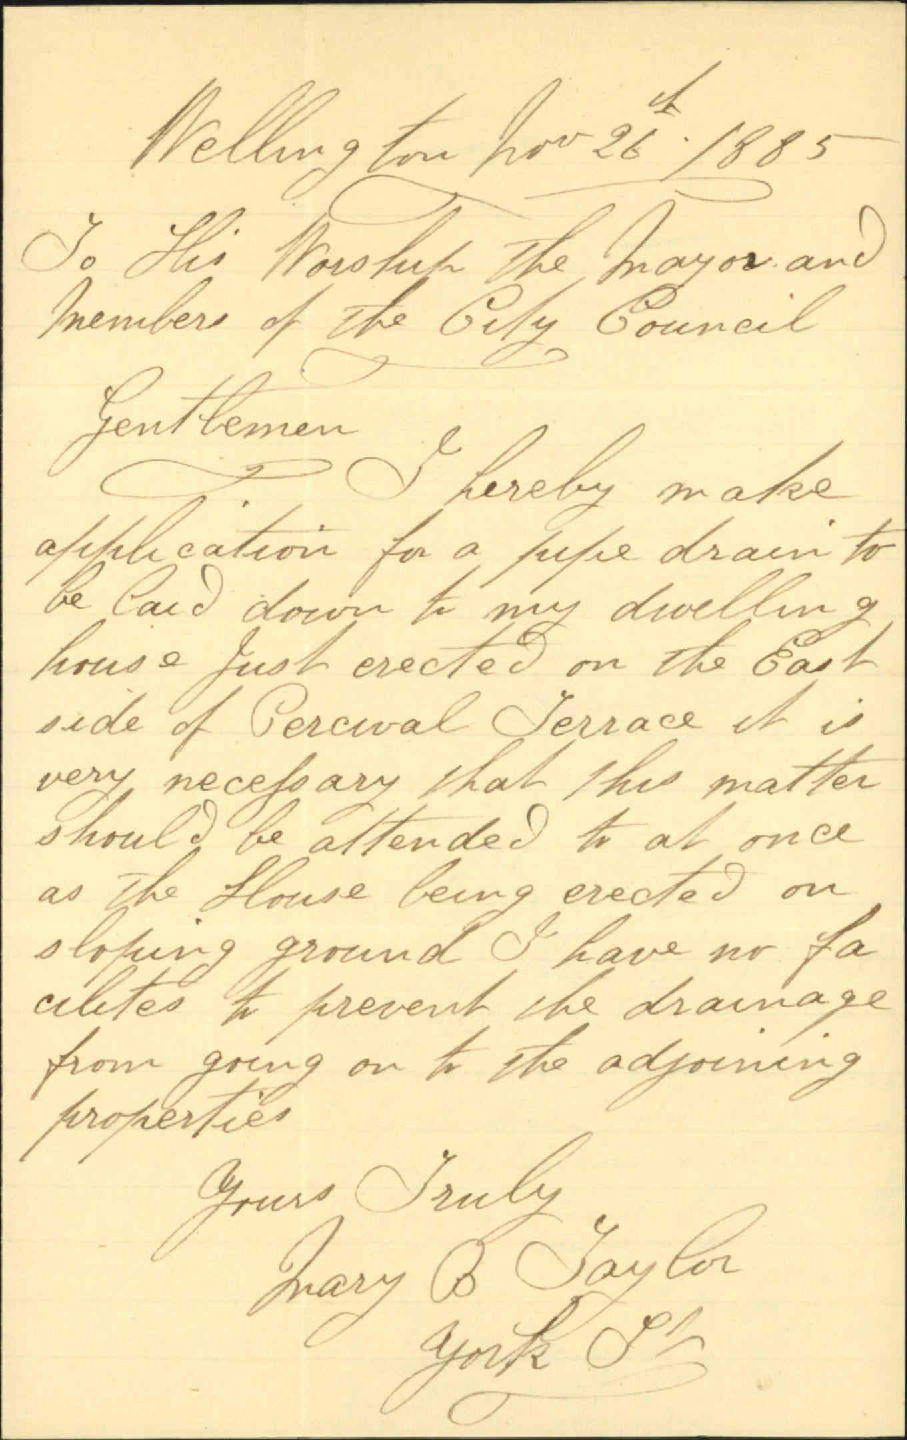 Wellington Nov 26th. 1885
To His Worship the Mayor and
Members of the City Council
Gentlemen
I hereby make
application for a pipe drain to
be laid down to my dwelling
house Just erected on the East
side of Percival Terrace it is
very necessary that this matter
should be attended to at once
as the House being erected on
sloping ground I have no fa
cilites to prevent the drainage
from going on to the adjoining
properties
Yours Truly
Mary B Taylor
York St